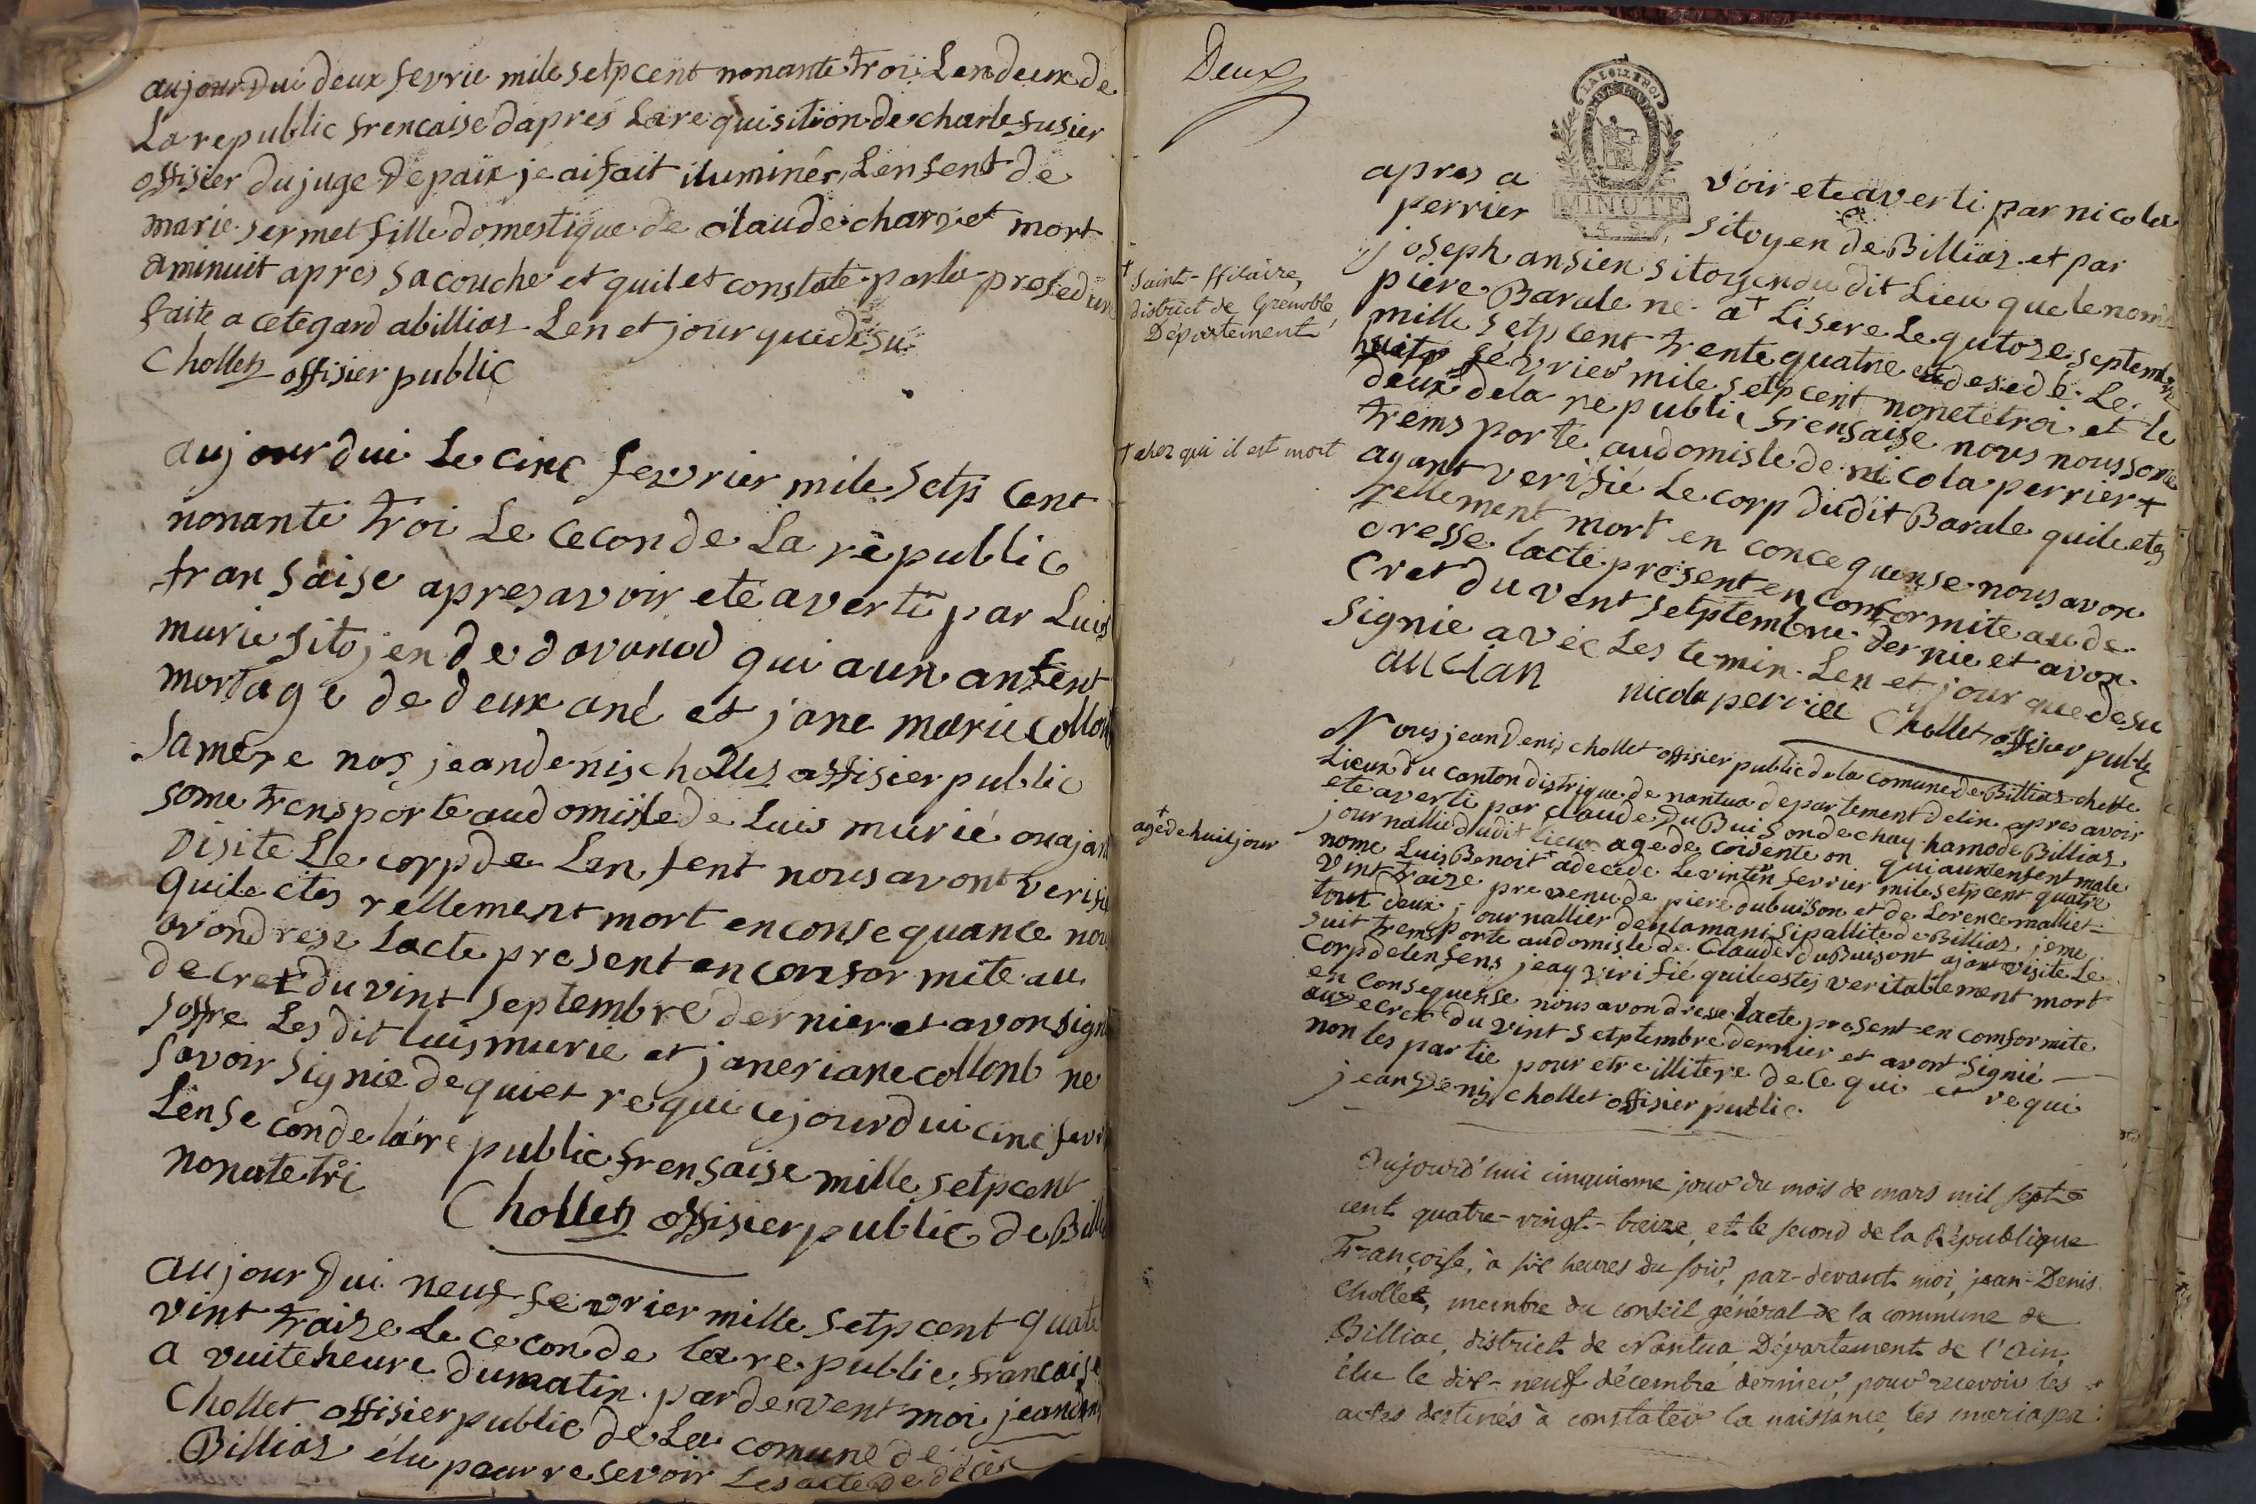 aujourdui deux fevrie mile setpcent nonante troi Lan deux de
La republic frencaise dapres La requisition de charle fusier
offisier du juge de paix je ai fait iluminér Lenfent de
marie sermet fille domestique de claude charvet mort
a minuit apres sa couche et quil et constaté par la prosedure
faite a cetegard abillias Len et jour que desu
Chollet offisier public
aujourdui Le cinc fevrier mile setp cent
nonante troi Le ceconde La republic
fransaise apres avoir eté averti par Luis
murie sitojen de davanod qui a un anfent
mort age de deux ané et jane marie collonb
sa mere nos jean denis chollet offisier public
some trensporté au domisile de Luis murié ou ajant
visite Le corp de Lenfent nous avont verifié
quile etes rellement mort en consequance nous
avon dresé Lacte present en consormite au
decret du vint septembre dernier et avon signé
soffre Les dit luis murie et jane riane collonb ne
savoir signie de qui et requi ce jourdui cinc fevri
Lense conde la republic frensaise mille setpcent
nonate tri
Chollet offisier public de Billi
aujourdui neuf fevrier mille setpcent quate
vint traize Le ceconde la republic francaise
a vuiteheure du matin par devent moi jean denis
Chollet offisier public de La comune de
Billias élu pour resevoir Les acte de décès
Deux
LA LOI ET LE ROI
MINUTE
4 S.
apres a voir ete averti par nicola
perrier sitoyen de Billias et par
joseph ansien sitoyen du dit Lieu que le nomé
piere Barale né a + Lisere Le qutoze septembre
mille setpcent trente quatre et desedé Le
huitp fevrier mile setpcent nonetetroi et le
deux de la republic frensaise nous nous some
tremsporté au domisle de nicola perrier +
ayant verifié Le corp dudit Barale quile etes
rellement mort en concequense nous avon
dresse lacte present en comformite au de
cret du vent setptembre dernie et avon
signie avec Les temin Len et jour que desu
ancian nicola perrier Chollet offisier public
+ Saint-Hilaire,
district de Grenoble
Département
+ chez qui il est mort
Nous jean denis chollet offisier public de la comune de Billias cheffe
Lieux du canton distrique de nantua departement de lin apres avoir
ete averti par claude du Buison de chay hamo de Billias
journallie dudit lieux age de coisente on qui a un enfent male
nome Luis Benoit + adecede Le vintein fevrier mile setpcent quatre
vint traize prevenu de piere dubuison et de Lorence malliet
tout deux journallier de la manisipallite de Billias je me
suit tremsporte au domisle de Claude du Buisont ajant visite Le
corp delenfens jeay virifié quile estes veritablement mort
en consequense nous avon dresse lacte present en comformite
au decret du vint setptembre dernier et avont signié
non les partie pour etre illitere de ce qui et requi
jean denis chollet offisier public
+ agé de huit jour
Aujourd'hui cinquieme jour du mois de mars mil sept
cent quatre-vingt-treize, et le second de la République
Françoise, à six heures du soir, par-devant moi, jean-Denis
Chollet, membre du conseil général de la commune de
Billiac, district de Nantua Département de l'Ain,
élu le dix-neuf décembre dernier, pour recevoir les
actes destinés à constater la naissance, les mariages